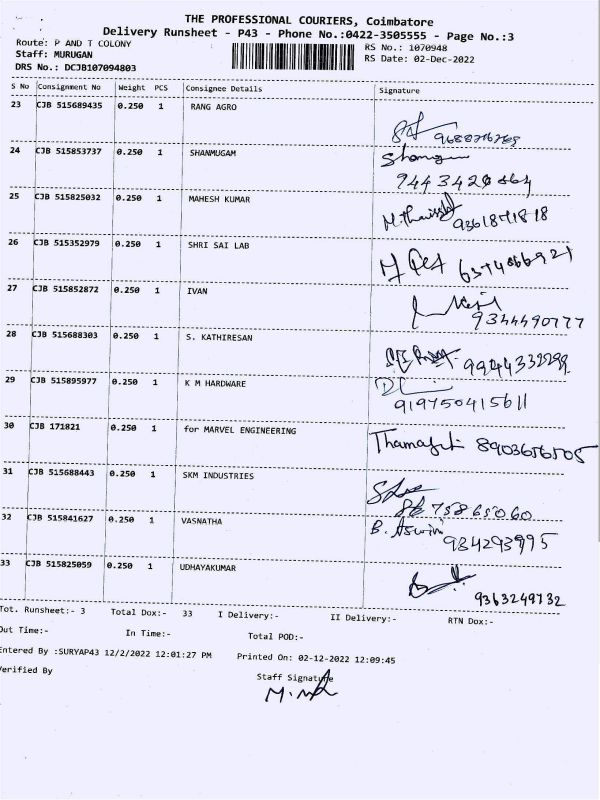 THE PROFESSIONAL COURIERS, Coimbatore
Delivery Runsheet - P43 - Phone No.:0422-3505555 - Page No.:3
Route: P AND T COLONY
Staff: MURUGAN
DRS No.: DCJB107094803
RS No.: 1070948
RS Date: 02-Dec-2022
S No Consignment No Weight PCS Consignee Details Signature
23 CJB 515689435 0.250 1 RANG AGRO
24 CJB 515853737 0.250 1 SHANMUGAM
25 CJB 515825032 0.250 1 MAHESH KUMAR
26 CJB 515352979 0.250 1 SHRI SAI LAB
27 CJB 515852872 0.250 1 IVAN
9344490777
28 CJB 515688303 0.250 1 S. KATHIRESAN
9944332299
29 CJB 515895977 0.250 1 K M HARDWARE
919750415611
30 CJB 171821 0.250 1 for MARVEL ENGINEERING
8903656505
31 CJB 515688443 0.250 1 SKM INDUSTRIES
32 CJB 515841627 0.250 1 VASNATHA
B. Aswini
984293995
33 CJB 515825059 0.250 1 UDHAYAKUMAR
9363249732
Tot. Runsheet:- 3 Total Dox:- 33 I Delivery:- II Delivery:- RTN Dox:-
Out Time:- In Time:- Total POD:-
Entered By :SURYAP43 12/2/2022 12:01:27 PM Printed On: 02-12-2022 12:09:45
Verified By Staff Signature